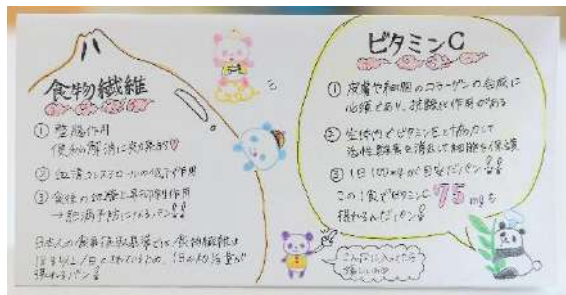 食物繊維
① 整腸作用
便秘の解消に効果的♡
② 血清コレステロールの低下作用
③ 食後の血糖上昇抑制作用
→肥満予防になるパン!!
日本人の食事摂取基準では食物繊維は
摂れるパン!
ビタミンC
① 皮膚や細胞のコラーゲンの合成に
必須であり、抗酸化作用がある
② 生体内でビタミンEと協力して
活性酸素を消去して細胞を保護
③ 1日100mgが目安だパン!!
この1食でビタミンC 75mgも
摂れるんだパン!